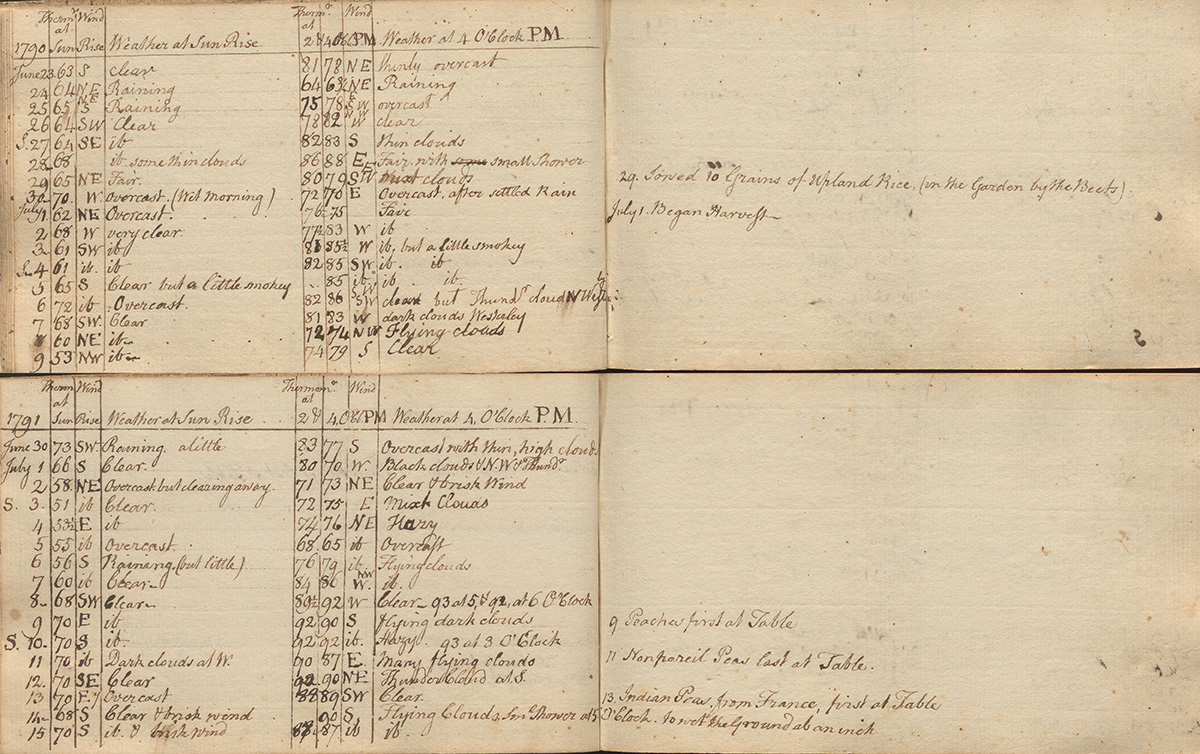 Therm.r Wind Thermo.r Wind
at at
1790 Sun Rise Weather at Sun Rise 2 & 4 OCl PM Weather at 4 O'Clock P.M.
June 23 63 S clear 81 78 NE thinly overcast
24 64 NE Raining 64 63½ NE Raining
25 65 NE S Raining 75 78 SW overcast
26 64 SW Clear 78 82 W clear
S. 27 64 SE it 82 83 S thin clouds
28 68 it some thin clouds 86 88 E Fair, with some small Shower
29 65 NE Fair. 80 79 SW Mixt clouds 29. Sowed 10 Grains of Upland Rice, (in the Garden by the Beets).
30 70 W. overcast. (Wet morning) 72 70 E Overcast, after settled Rain
July 1 62 NE Overcast. 76 75 Fair July 1. Began Harvest
2 68 W very clear. 77½ 83 W it
3 61 SW it 81 85½ W it, but a little smokey
S. 4 61 it. it 82 85 SW it. it
5 65 S Clear but a little smokey 85 it it it.
6 72 it Overcast. 82 86 SW clear but Thund.r cloud N Westerly
7 68 SW. Clear 81 83 W dark clouds Westerly
8 60 NE it 72 74 NW Flying clouds
9 53 NW it 74 79 S Clear
Therm Wind Thermom.r Wind
at at
1791 Sun Rise Weather at Sun Rise 2 & 4 OCl PM Weather at 4 O'Clock P.M.
June 30 73 SW. Raining a little 83 77 S Overcast with thin, high clouds
July 1 66 S Clear. 80 70 W. Black clouds N.W. & Thund.r
2 58 NE Overcast but clearing away. 71 73 NE Clear & brisk Wind
S. 3. 51 it Clear. 72 75 E Mixt Clouds
4 53½ E it 74 76 NE Hazy
5 55 it overcast. 68 65 it Overcast
6 56 S Raining (but little) 76 79 it. Flying clouds
7 60 it Clear 84 86 NW W. it.
8 68 SW Clear 89½ 92 W Clear 93 at 5, & 92, at 6 O'Clock
9 70 E it 92 90 S flying dark clouds 9 Peaches first at Table
S. 10. 70 S it 92 92 it. Hazy. 93 at 3 O'Clock
11 70 it Dark clouds at W. 90 87 E. Many flying clouds 11 Nonpareil Peas last at Table.
12. 70 SE Clear 92 90 NE Thunder Cloud at S.
13 70 E Overcast 88 89 SW Clear. 13 Indian Peas, from France, first at Table
14 68 S Clear & brisk wind 90 S Flying Clouds, Sm.l Shower at 5 O'Clock. to wet the Ground ab an inch
15 70 S it. & brisk wind 88 87 it it.